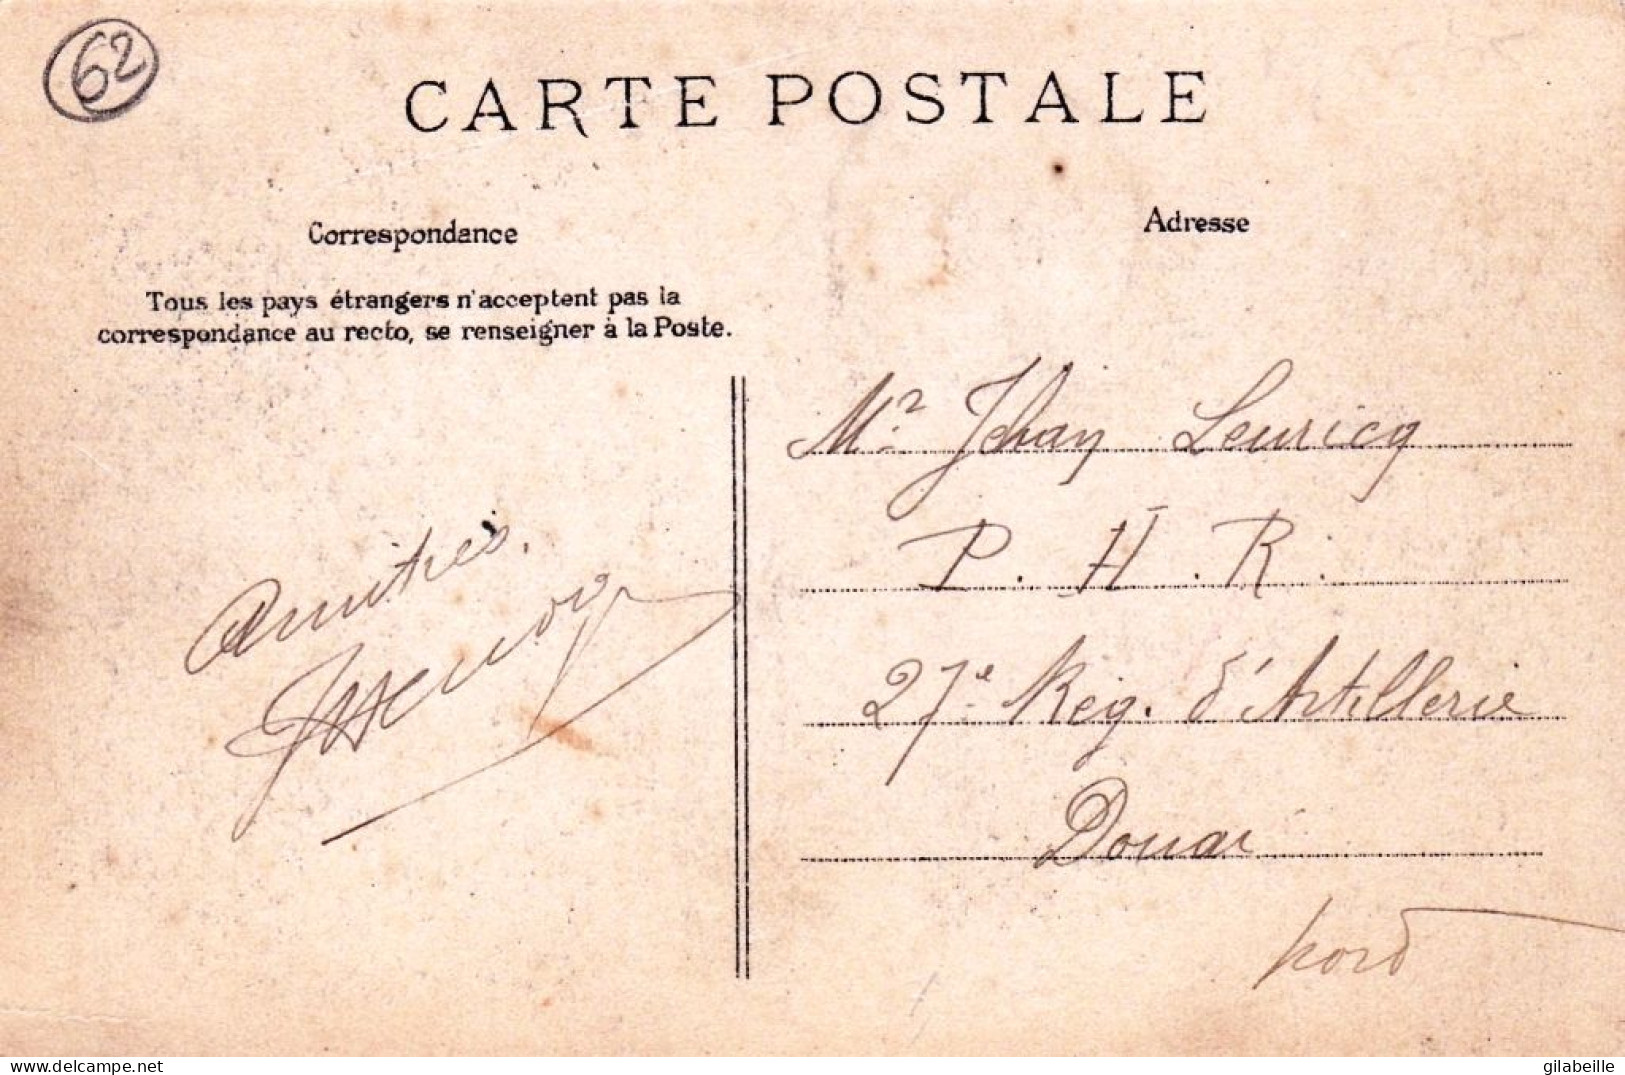 62
CARTE POSTALE
Correspondance
Tous les pays étrangers n'acceptent pas la
correspondance au recto, se renseigner à la Poste.
Amitiés.
Adresse
Mr Jehan Leuricq
P. H. R.
27e Rég. d'Artillerie
Douai
Nord
www.delcampe.net
gilabeille